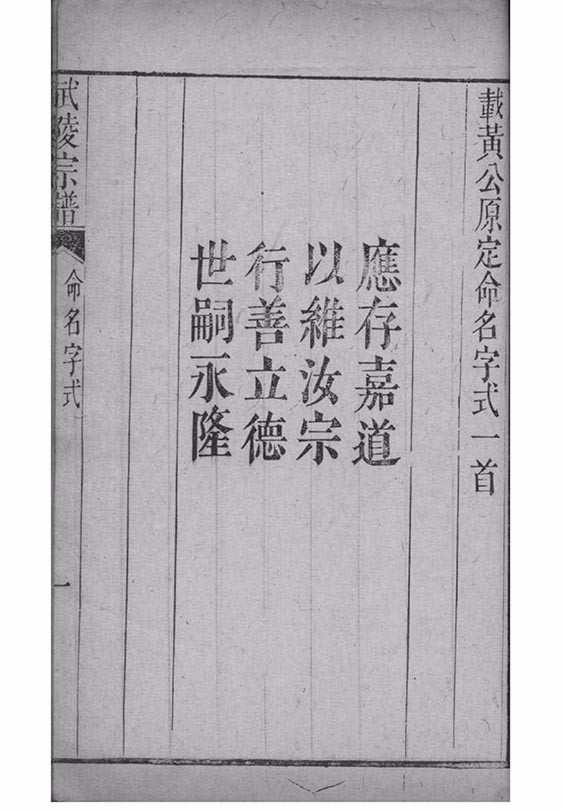 載黃公原定命名字式一首
應存嘉道
以維汝宗
行善立德
世嗣永隆
武陵宗譜
命名字式
一